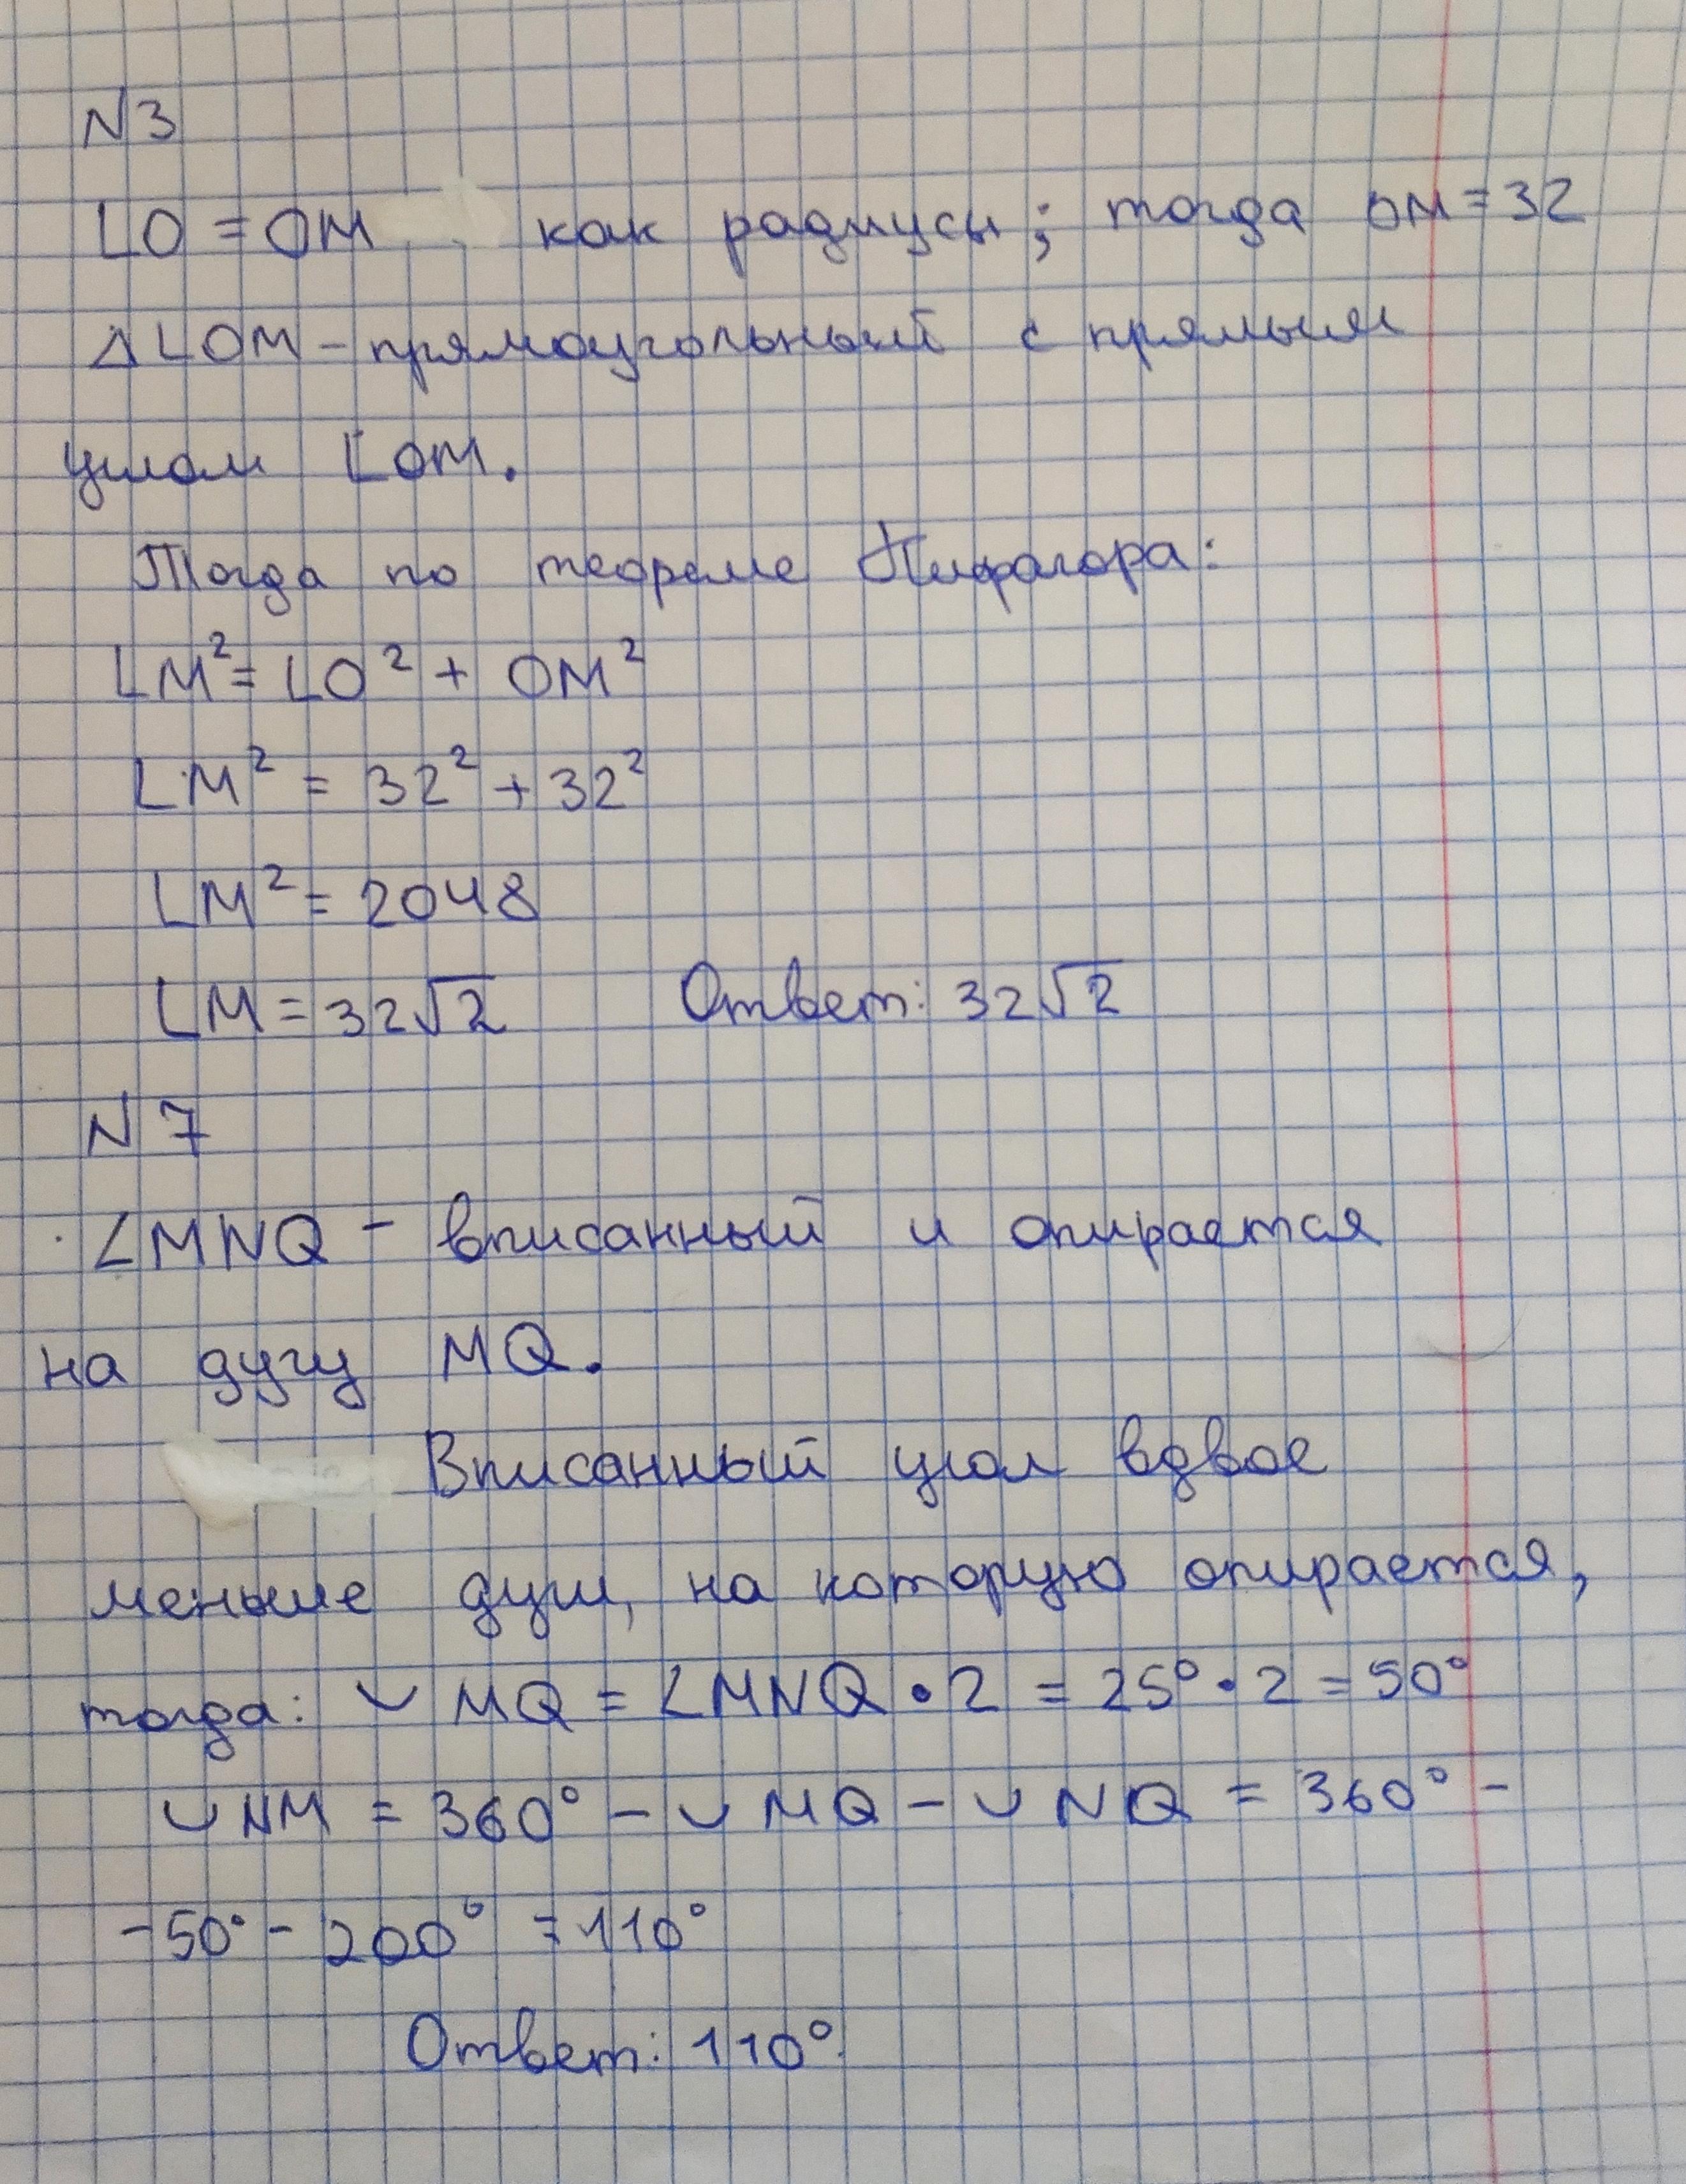 N3
LO = OM как радиусы; тогда OM = 32
△LOM – прямоугольный с прямым
углом LOM.
Тогда по теореме Пифагора:
LM² = LO² + OM²
LM² = 32² + 32²
LM² = 2048
LM = 32√2 Ответ: 32√2
N7
∠MNQ – вписанный и опирается
на дугу MQ.
Вписанный угол вдвое
меньше дуги, на которую опирается,
тогда: ◡ MQ = ∠MNQ • 2 = 25° • 2 = 50°
◡ NM = 360° – ◡ MQ – ◡ NQ = 360° –
– 50° – 200° = 110°
Ответ: 110°